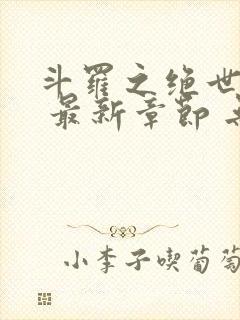 斗羅之绝世
最新章節
小李子喫葡萄